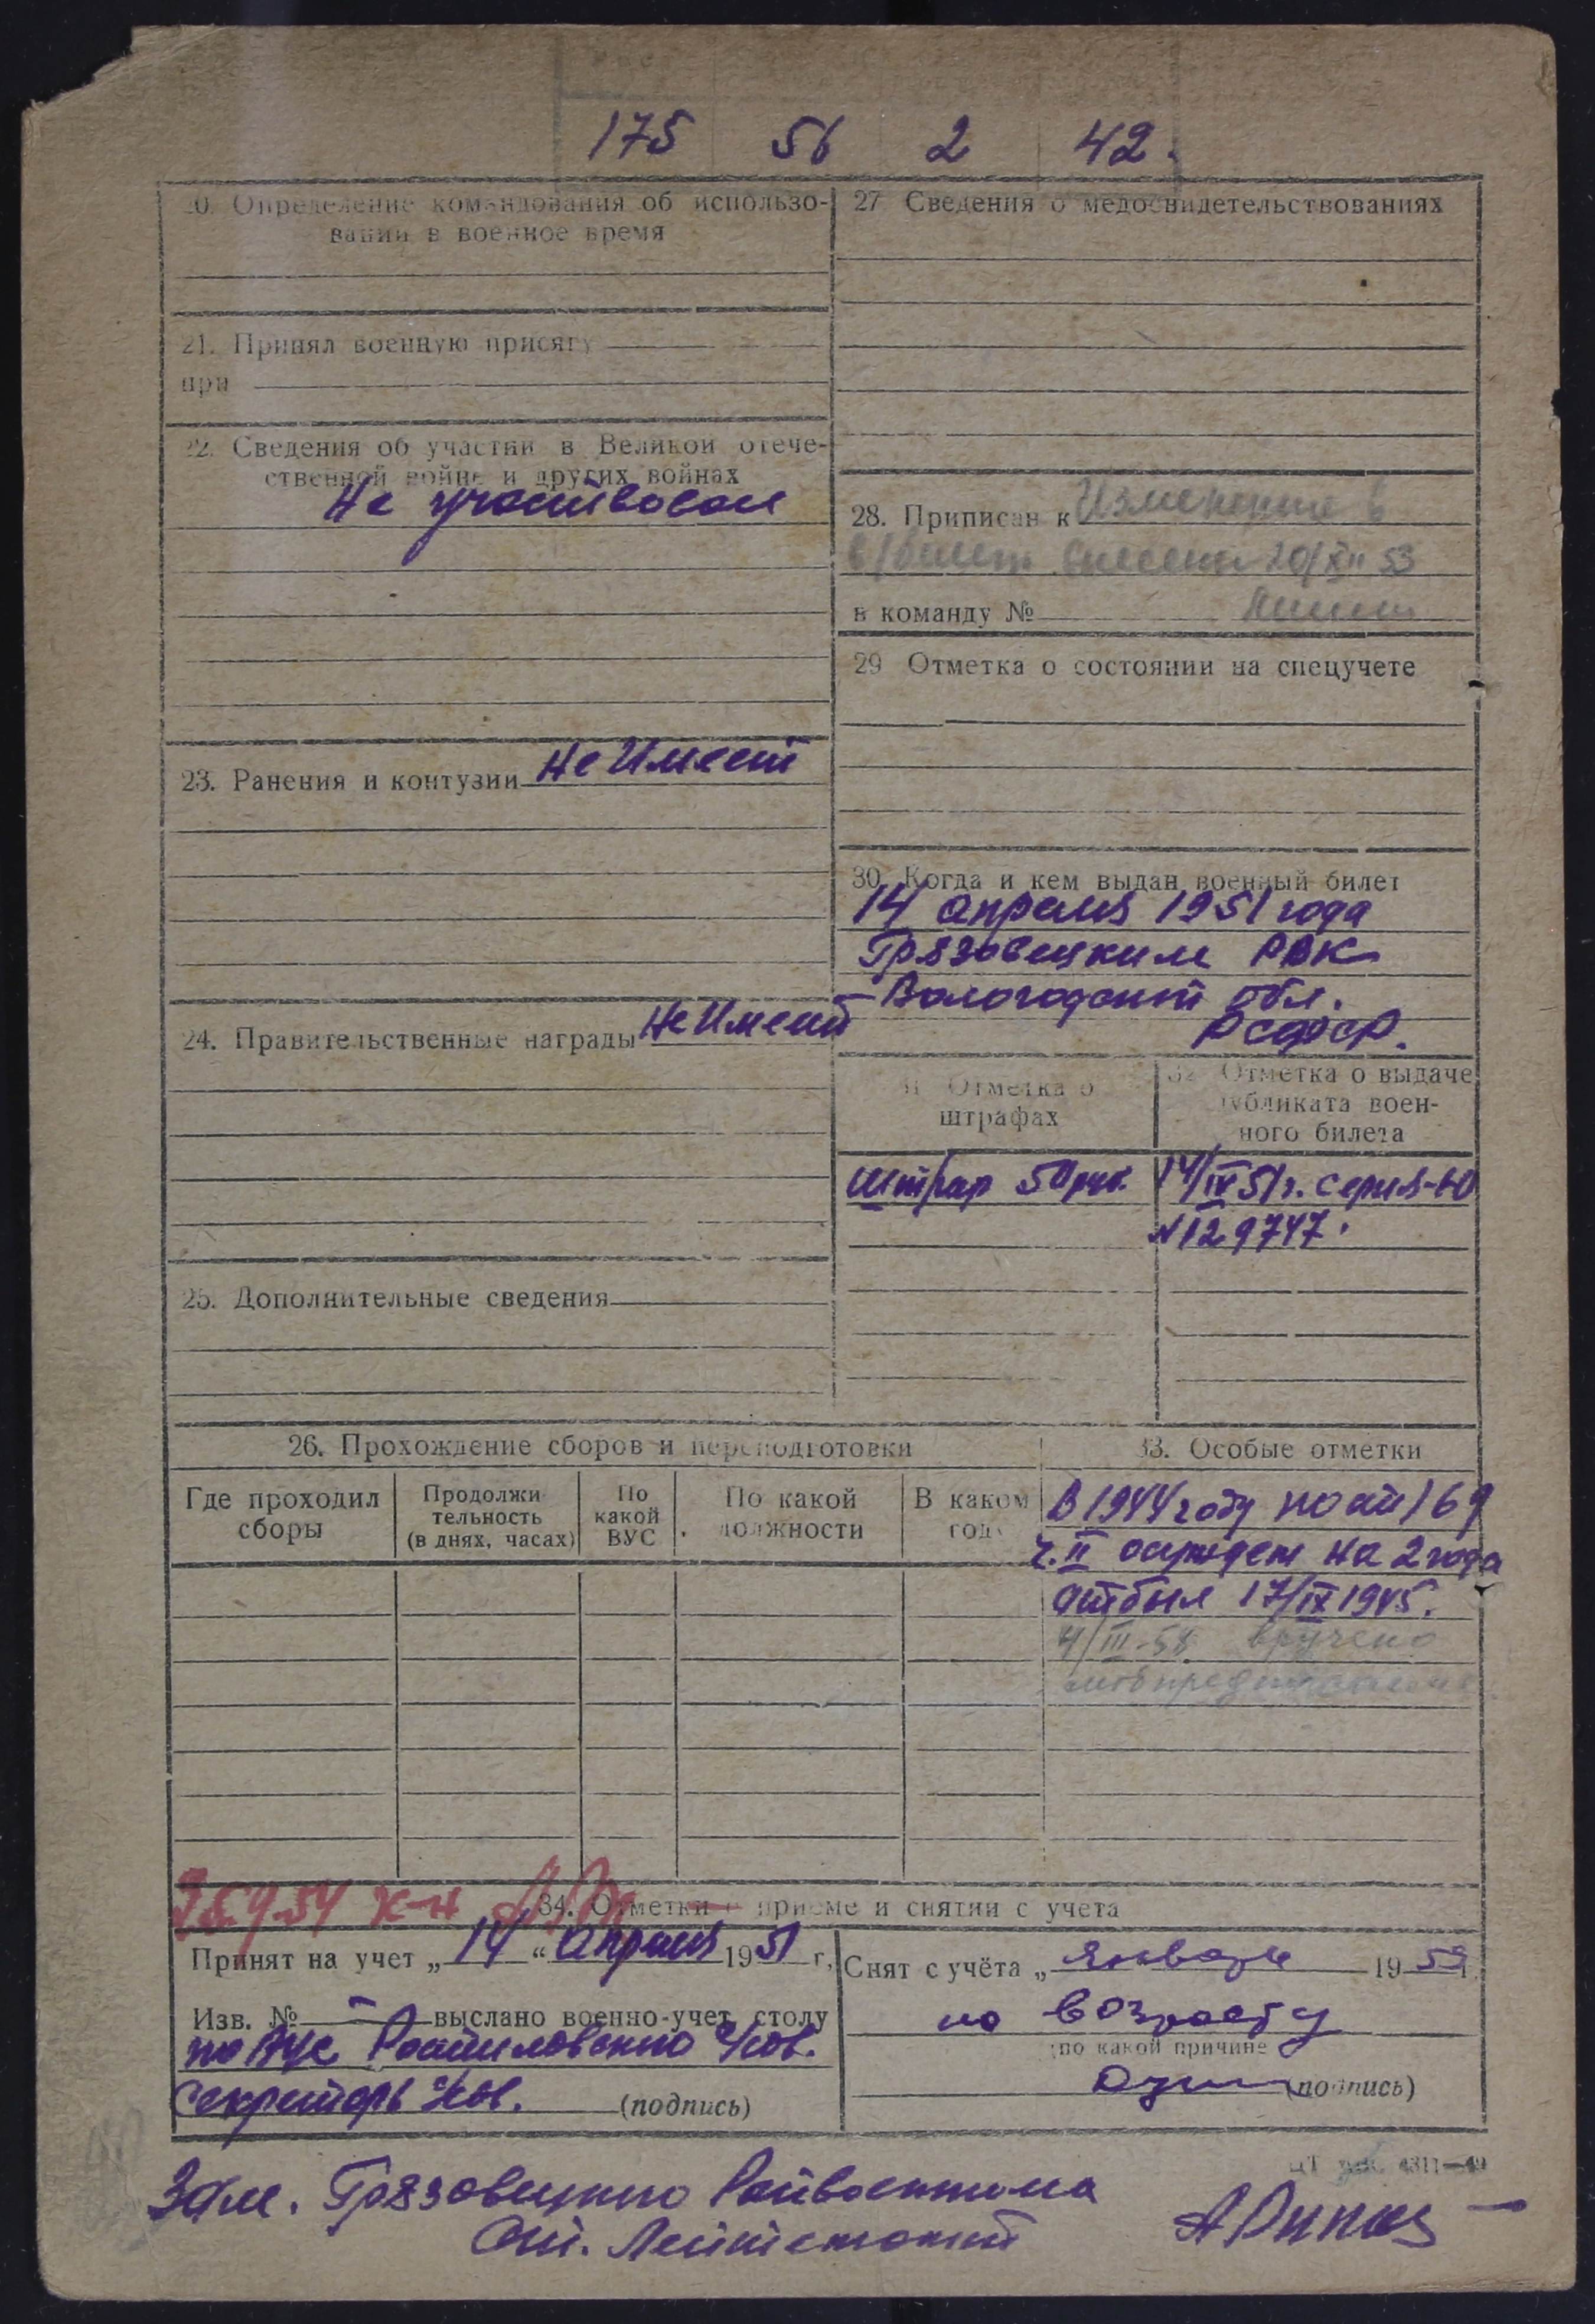 175 56 2 42.
20. Определение командования об использо-
вании в военное время
21. Принял военную присягу
при
22. Сведения об участии в Великой отече-
ственной войне и других войнах
Не участвовал
23. Ранения и контузии Не Имеет
24. Правительственные награды Не Имеет
25. Дополнительные сведения
27 Сведения о медосвидетельствованиях
28. Приписан к Изменения в
в/билет внесены 20/XII 53
в команду №
29 Отметка о состоянии на спецучете
30. Когда и кем выдан военный билет
14 апреля 1951 года
Грязовецким РВК
Вологодской обл.
РСФСР.
31 Отметка о
штрафах
Штраф 50 руб.
32 Отметка о выдаче
дубликата воен-
ного билета
14/IV 51 г. серия-НО
N129747.
26. Прохождение сборов и переподготовки
Где проходил
сборы
Продолжи-
тельность
(в днях, часах)
По
какой
ВУС
По какой
должности
В каком
году
33. Особые отметки
В 1944 году по ст 169
ч. II осужден на 2 года
отбыл 17/IX 1945.
4/III-58 вручено
мобпредписание
34. Отметки о приеме и снятии с учета
Принят на учет „14“ Апреля 1951 г.
Изв. № — выслано военно-учет. столу
по ВУС Ростиловского с/сов.
Секретарь с/сов. (подпись)
Снят с учёта „ Января 1959 г.
по возрасту
(по какой причине)
(подпись)
ЦТ 4311—49
Зам. Грязовецкого Райвоенкома
Ст. Лейтенант